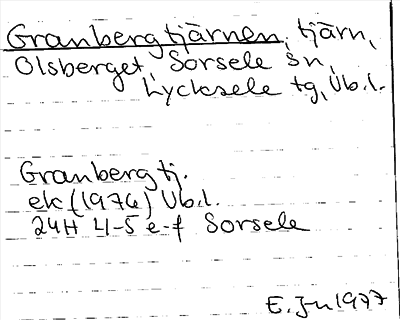 Granbergtjärnen, tjärn,
Olsberget, Sorsele sn,
Lycksele tg, Vb.l.
Granbergtj.
ek (1976) Vb.l.
24H 4-5 e-f Sorsele
E. Jn 1977